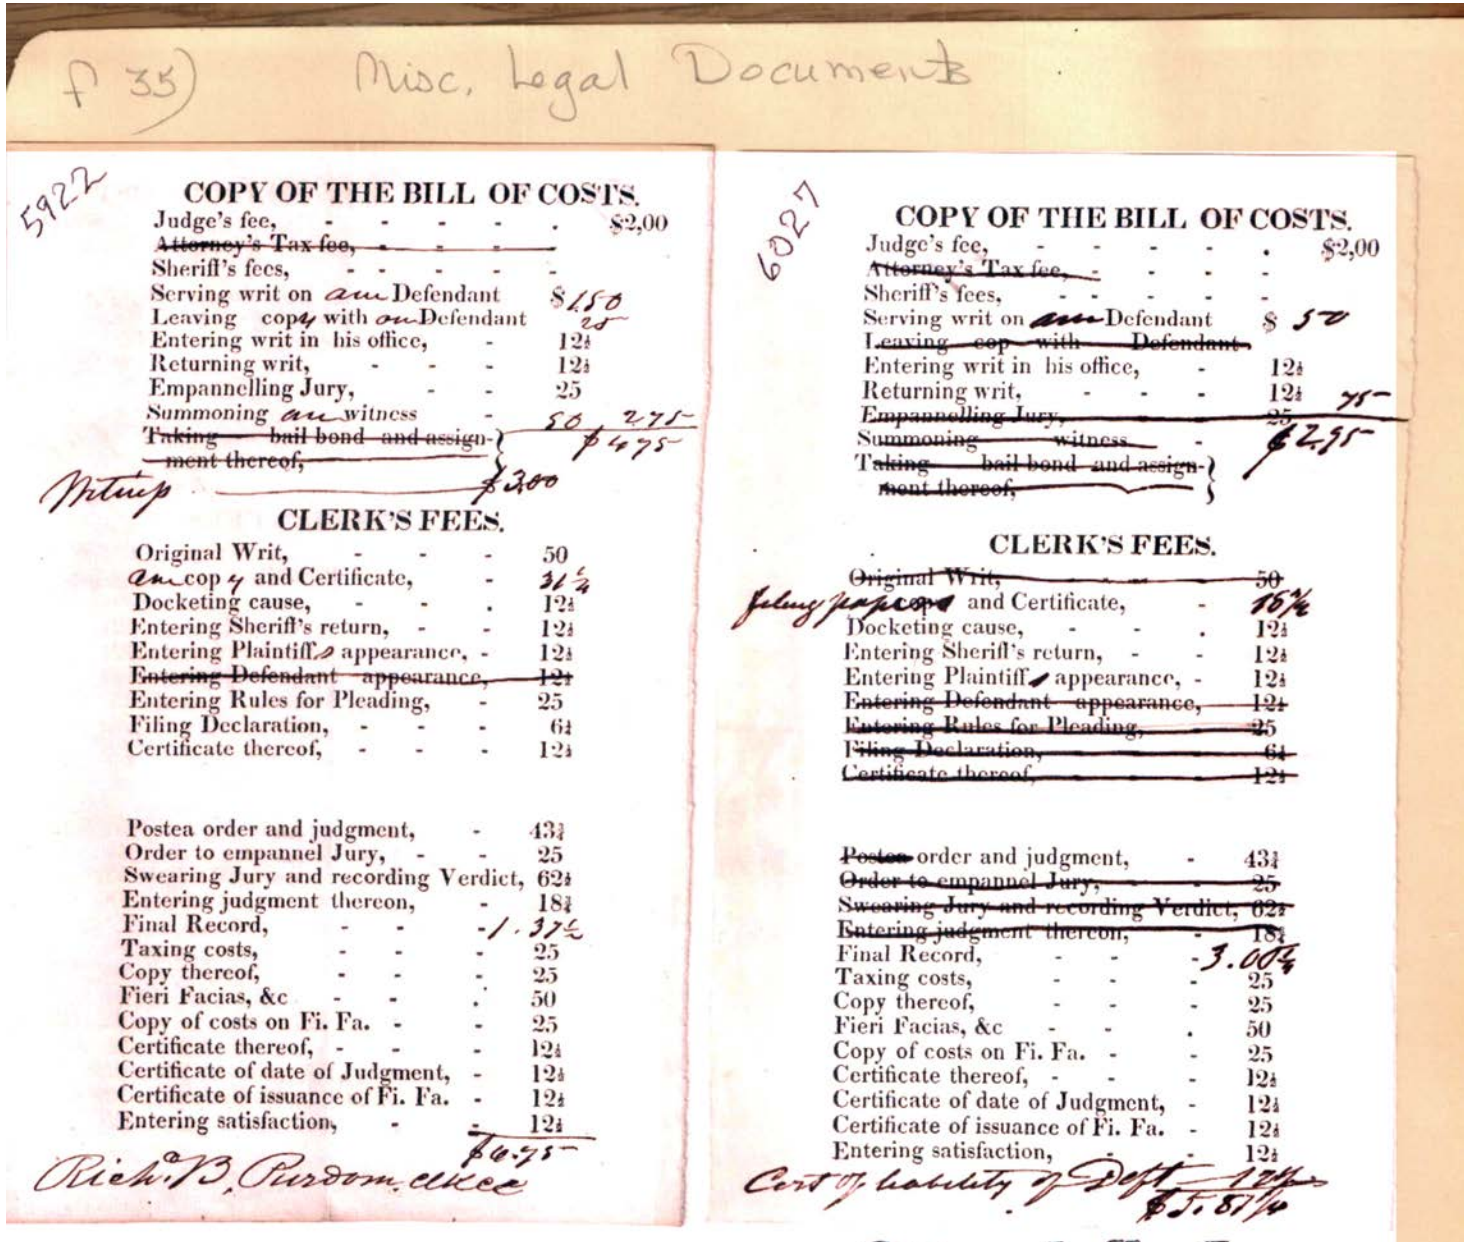 f 35) Misc. Legal Documents
5922
COPY OF THE BILL OF COSTS.
Judge's fee, - - - - . $2,00
Attorney's Tax fee, - - - -
Sheriff's fees, - - - - -
Serving writ on one Defendant $1.50
Leaving copy with one Defendant 25
Entering writ in his office, - 12½
Returning writ, - - - 12½
Empannelling Jury, - - 25
Summoning one witness - 50 2.75
Taking bail bond and assign- $4.75
ment thereof,
$3.00
CLERK'S FEES.
Original Writ, - - - 50
one copy and Certificate, - 31¼
Docketing cause, - - . 12½
Entering Sheriff's return, - - 12½
Entering Plaintiffs appearance, - 12½
Entering Defendant appearance, 12½
Entering Rules for Pleading, - 25
Filing Declaration, - - - 6¼
Certificate thereof, - - - 12½
Postea order and judgment, - 43¾
Order to empannel Jury, - - 25
Swearing Jury and recording Verdict, 62½
Entering judgment thereon, - 18¾
Final Record, - - - 1.37½
Taxing costs, - - - 25
Copy thereof, - - - 25
Fieri Facias, &c - - . 50
Copy of costs on Fi. Fa. - - 25
Certificate thereof, - - - 12½
Certificate of date of Judgment, - 12½
Certificate of issuance of Fi. Fa. - 12½
Entering satisfaction, - - 12½
$6.75
Richd B. Purdom
6027
COPY OF THE BILL OF COSTS.
Judge's fee, - - - - . $2,00
Attorney's Tax fee, - - - -
Sheriff's fees, - - - - -
Serving writ on one Defendant $ 50
Leaving cop with Defendant
Entering writ in his office, - 12½
Returning writ, - - - 12½ 75
Empannelling Jury, 25
Summoning witness - $2.75
Taking bail bond and assign-
ment thereof,
CLERK'S FEES.
Original Writ, 50
filing papers and Certificate, -
Docketing cause, - - . 12½
Entering Sheriff's return, - - 12½
Entering Plaintiff appearance, - 12½
Entering Defendant appearance, 12½
Entering Rules for Pleading, 25
Filing Declaration, 6¼
Certificate thereof, 12½
Postea order and judgment, - 43¾
Order to empannel Jury, 25
Swearing Jury and recording Verdict, 62½
Entering judgment thereon, - 18¾
Final Record, - - - 3.00¼
Taxing costs, - - - 25
Copy thereof, - - - 25
Fieri Facias, &c - - . 50
Copy of costs on Fi. Fa. - - 25
Certificate thereof, - - - 12½
Certificate of date of Judgment, - 12½
Certificate of issuance of Fi. Fa. - 12½
Entering satisfaction, - - 12½
Cert of liability of Deft 12½
$5.81¼